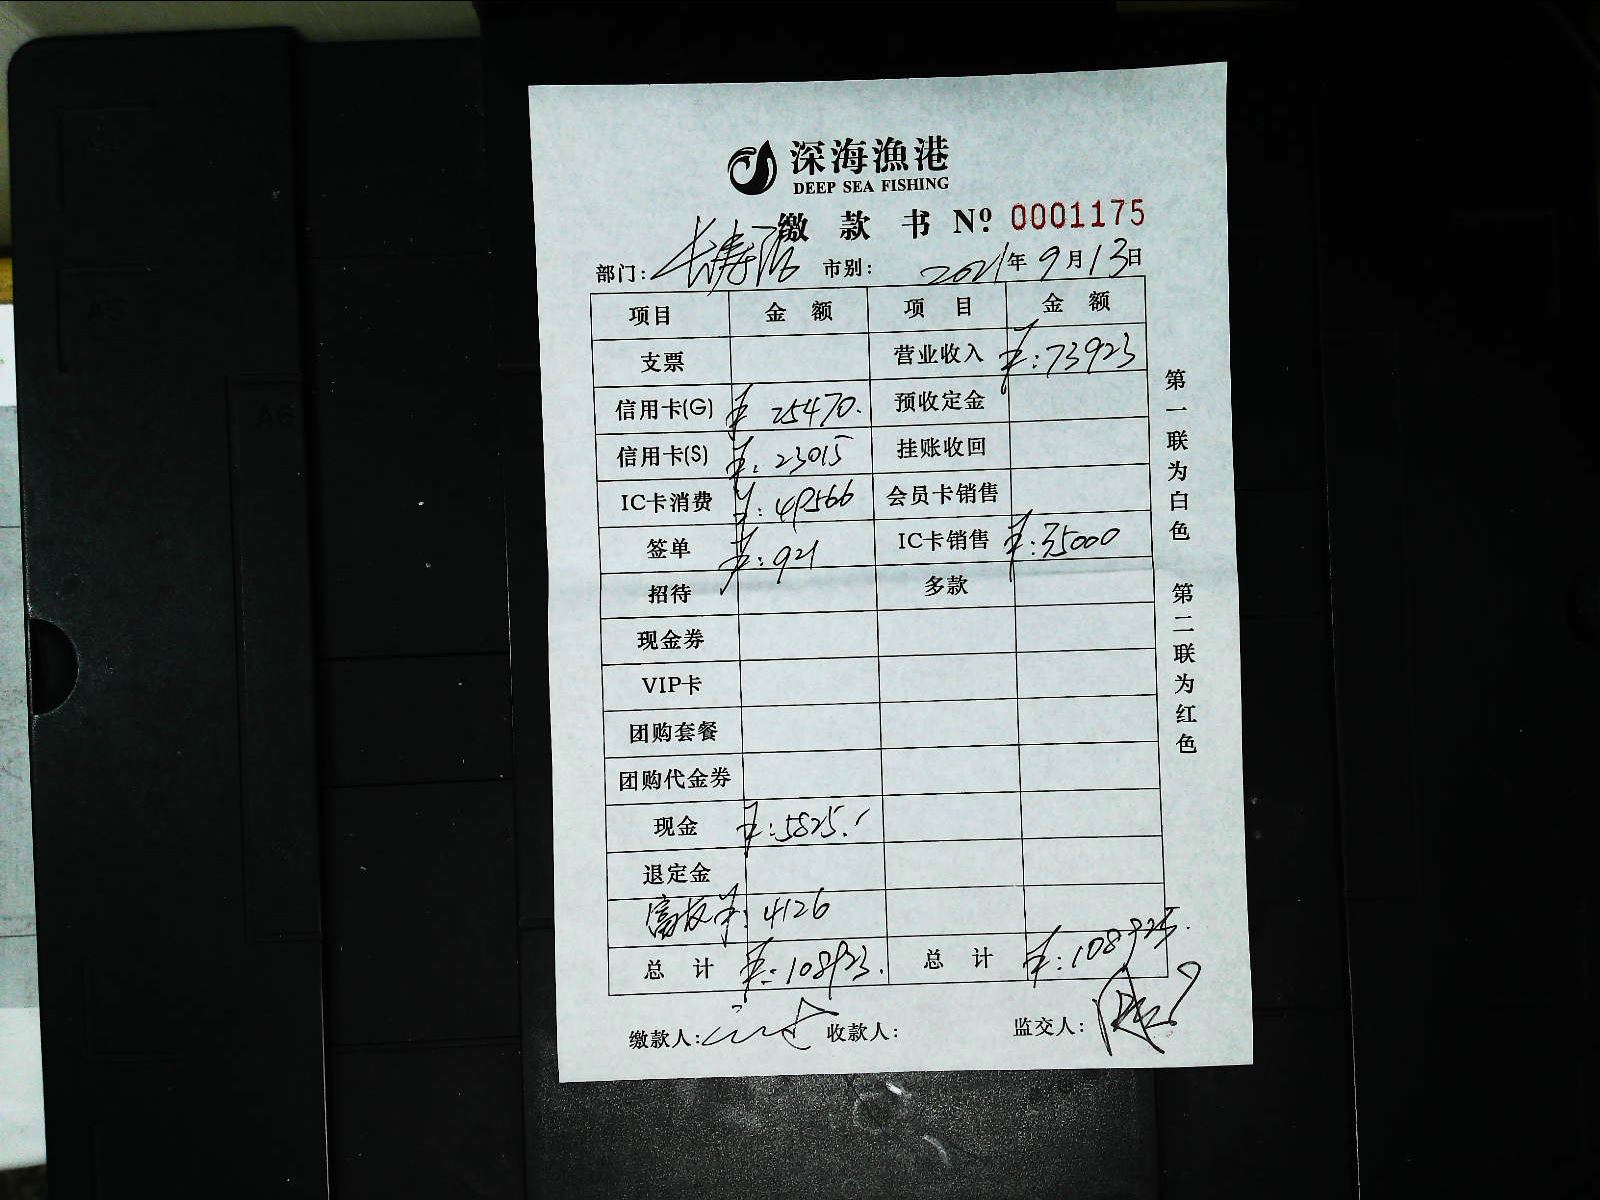 深海漁港
DEEP SEA FISHING
缴 款 书 Nº 0001175
部门: 长寿 市别: 2021年9月13日
项目 金 额 项 目 金 额
支票 营业收入 ¥:73923
信用卡(G) ¥ 25470. 预收定金
信用卡(S) ¥:23015 挂账收回
IC卡消费 ¥:49566 会员卡销售
签单 ¥:921 IC卡销售 ¥:35000
招待 多款
现金券
VIP卡
团购套餐
团购代金券
现金 ¥:5825.
退定金
¥:4126
总 计 ¥:108923. 总 计 ¥:108923.
缴款人: 收款人: 监交人:
第一联为白色 第二联为红色